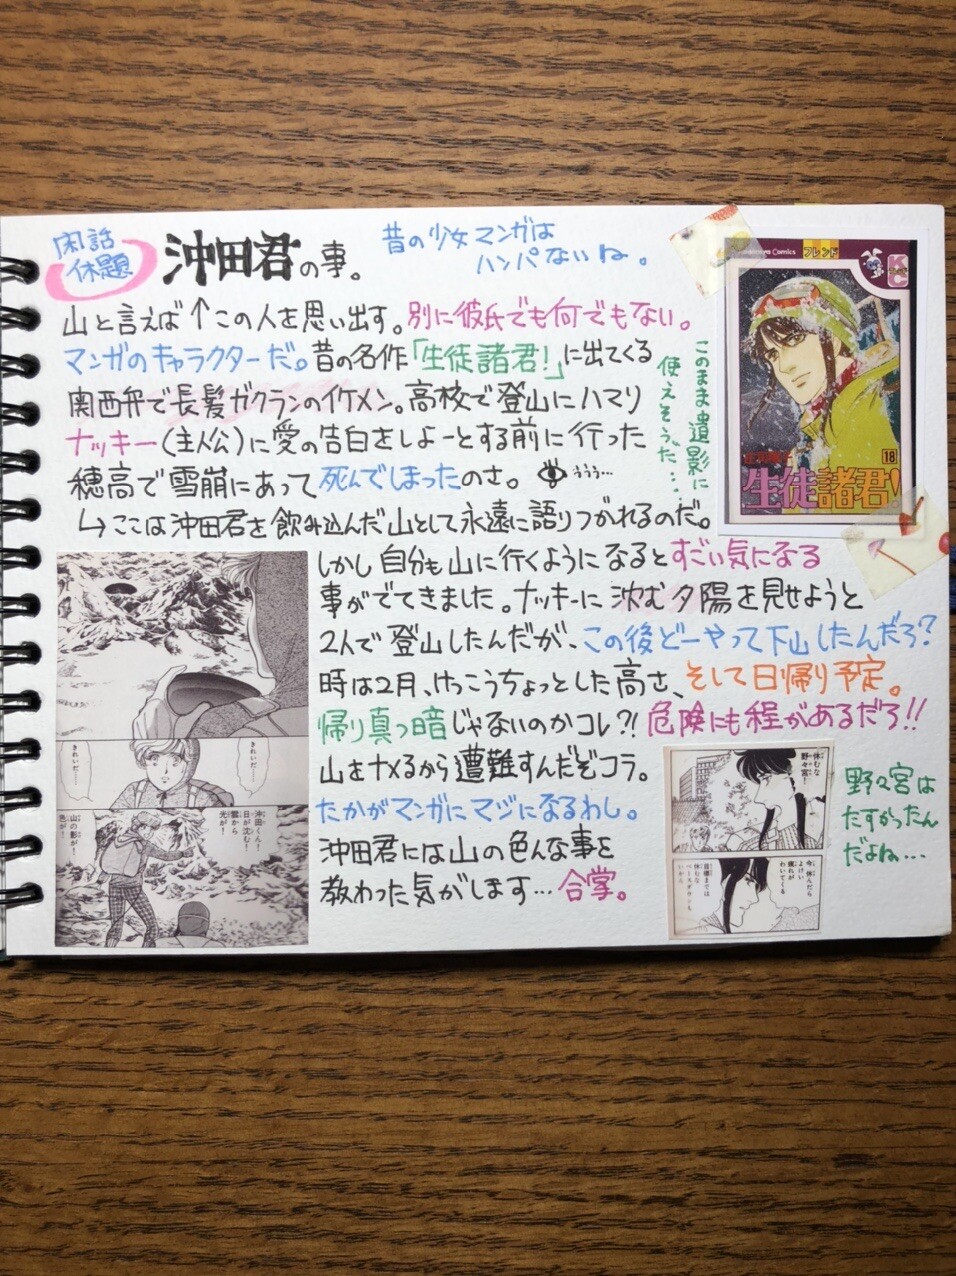 閑話
休題
沖田君の事。
昔の少女マンガは
ハンパないね。
山と言えば↑この人を思い出す。別に彼氏でも何でもない。
マンガのキャラクターだ。昔の名作「生徒諸君!」に出てくる
関西弁で長髪ガクランのイケメン。高校で登山にハマり
ナッキー(主人公)に愛の告白をしよーとする前に行った
穂高で雪崩にあって死んでしまったのさ。 ううう…
↳ここは沖田君を飲み込んだ山として永遠に語りつがれるのだ。
このまま遺影に
使えそうだ…
Comics フレンド
KC
18
生徒諸君!
しかし自分も山に行くようになるとすごい気になる
事がでてきました。ナッキーに沈む夕陽を見せようと
2人で登山したんだが、この後どーやって下山したんだろ?
時は2月、けっこうちょっとした高さ、そして日帰り予定。
帰り真っ暗じゃないのかコレ?!危険にも程があるだろ!!
山をナメるから遭難すんだぞコラ。
たかがマンガにマジになるわし。
沖田君には山の色んな事を
教わった気がします…合掌。
きれいだ……
きれいだ……
沖田くん!
日が沈む!
雲から
光が!
山の影が!
色が!
休むな
野々宮!
今 休んだら
よけい
疲れが
わいてくる
目標までは
休むな
ペースダウンも
いかん
野々宮は
たすかったん
だよね…